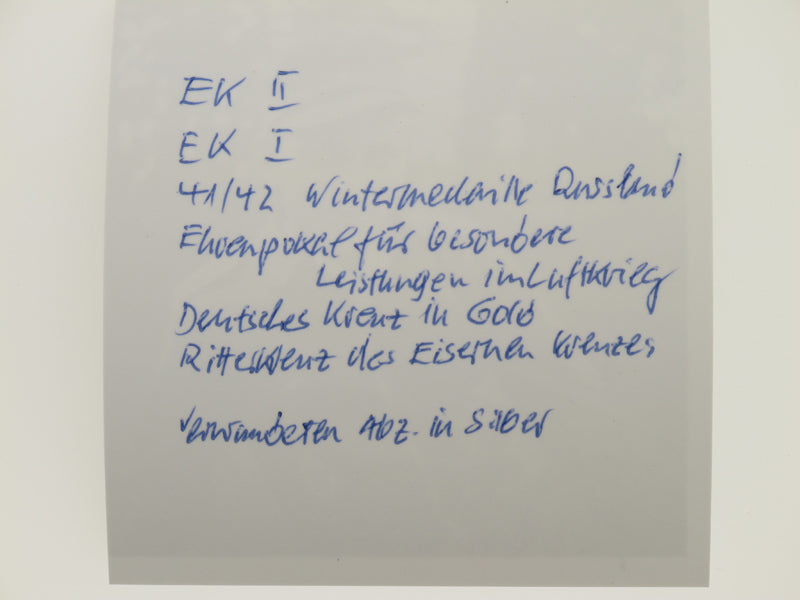 EK II
EK I
41/42 Wintermedaille Russland
Ehrenpokal für besondere
Leistungen im Luftkrieg
Deutsches Kreuz in Gold
Ritterkreuz des Eisernen Kreuzes
Verwundeten Abz. in Silber